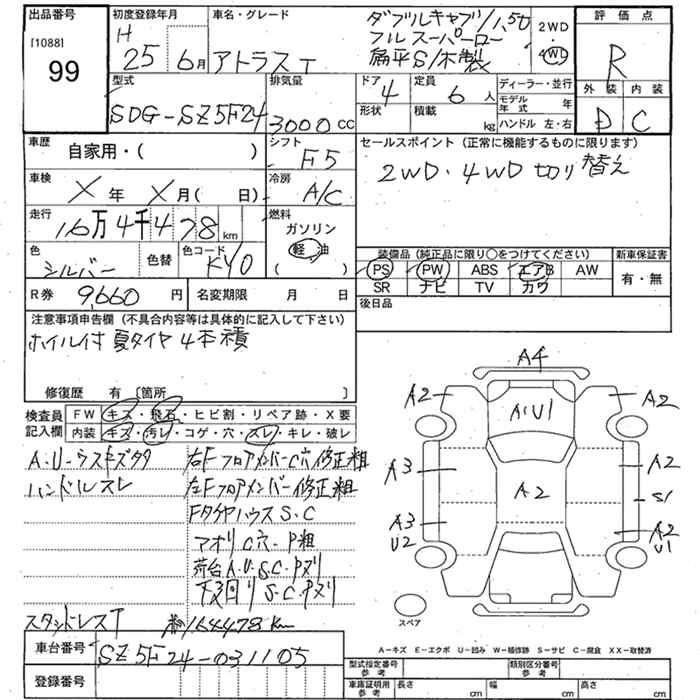 出品番号 初度登録年月 車名・グレード
[1088] 99
H 25 6月 アトラス
ダブルキャブ/1.5t
フルスーパーロー
扁平S/木製
2WD
4WD
評価点
R
外装 内装
D C
型式 排気量 ドア 定員 ディーラー・並行
SDG-SZ5F24 3000 CC 4 6人
形状 積載 kg モデル年式 年
ハンドル 左・右
車歴 自家用・( ) シフト F5
セールスポイント (正常に機能するものに限ります)
2WD・4WD 切り替え
車検 X 年 X 月( 日) 冷房 A/C
走行 16万4千478km 燃料 ガソリン
軽油
( )
色 シルバー 色替 色コード KY0
装備品(純正品に限り○をつけてください) 新車保証書
PS PW ABS エアB AW 有・無
SR ナビ TV カワ
R券 9,660 円 名変期限 月 日
後日品
注意事項申告欄(不具合内容等は具体的に記入して下さい)
ホイル付 夏タイヤ 4本積
修復歴 有 〔箇所 〕
検査員 FW キズ・飛石・ヒビ割・リペア跡・X要
記入欄 内装 キズ・汚レ・コゲ・穴・スレ・キレ・破レ
A・U-ウスキズタタ 右FフロアメンバーC穴修正粗
ハンドルスレ 左Fフロアメンバー修正粗
FタイヤハウスS・C
アオリC穴・P粗
荷台A・U・S・C・Pヌリ
下廻りS・C・Pヌリ
スタッドレスT 164478km
車台番号 SZ5F24-031105
登録番号
A4
A2 A・U1 A2
A3 A2 A2
S1
A3 A2
U2 U1
スペア
A-キズ E-エクボ U-凹み W-補修跡 S-サビ C-腐食 XX-取替済
型式指定番号 参考 類別区分番号 参考
車庫証明用 参考 長さ cm 幅 cm 高さ cm